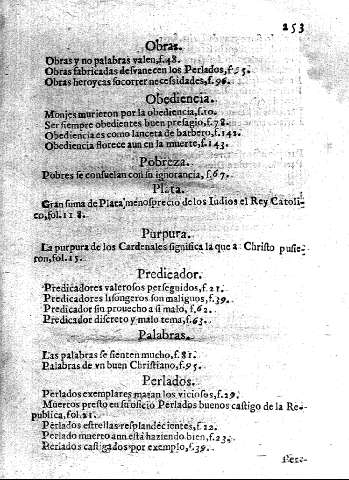 253
Obras.
Obras y no palabras valen,f.48.
Obras fabricadas desvanecen los Perlados,f.
Obras heroycas socorrer necessidades,f.96.
Obediencia.
Monjes murieron por la obediencia,f.10.
Ser siempre obedientes buen presagio,f.78.
Obediencia es como lanceta de barbero,f.142.
Obediencia florece aun en la muerte,f.143.
Pobreza.
Pobres se consuelan con su ignorancia,f.67.
Plata.
Gran suma de Plata, menosprecio de los Iudios el Rey Catoli-
co,fol.118.
Purpura.
La purpura de los Cardenales significa la que a Christo pusie-
ron,fol.15.
Predicador.
Predicadores valerosos perseguidos,f.21.
Predicadores lisongeros son malignos,f.39.
Predicador sin prouecho a si malo,f.62.
Predicador discreto y malo tema,f.63.
Palabras.
Las palabras se sienten mucho,f.81.
Palabras de vn buen Christiano,f.95.
Perlados.
Perlados exemplares matan los viciosos,f.29.
Muertos presto en su oficio Perlados buenos castigo de la Re-
publica,fol.21.
Perlados estrellas resplandecientes,f.22.
Perlado muerto aun está haziendo bien,f.23.
Perlados castigados por exemplo,f.39.
Per-